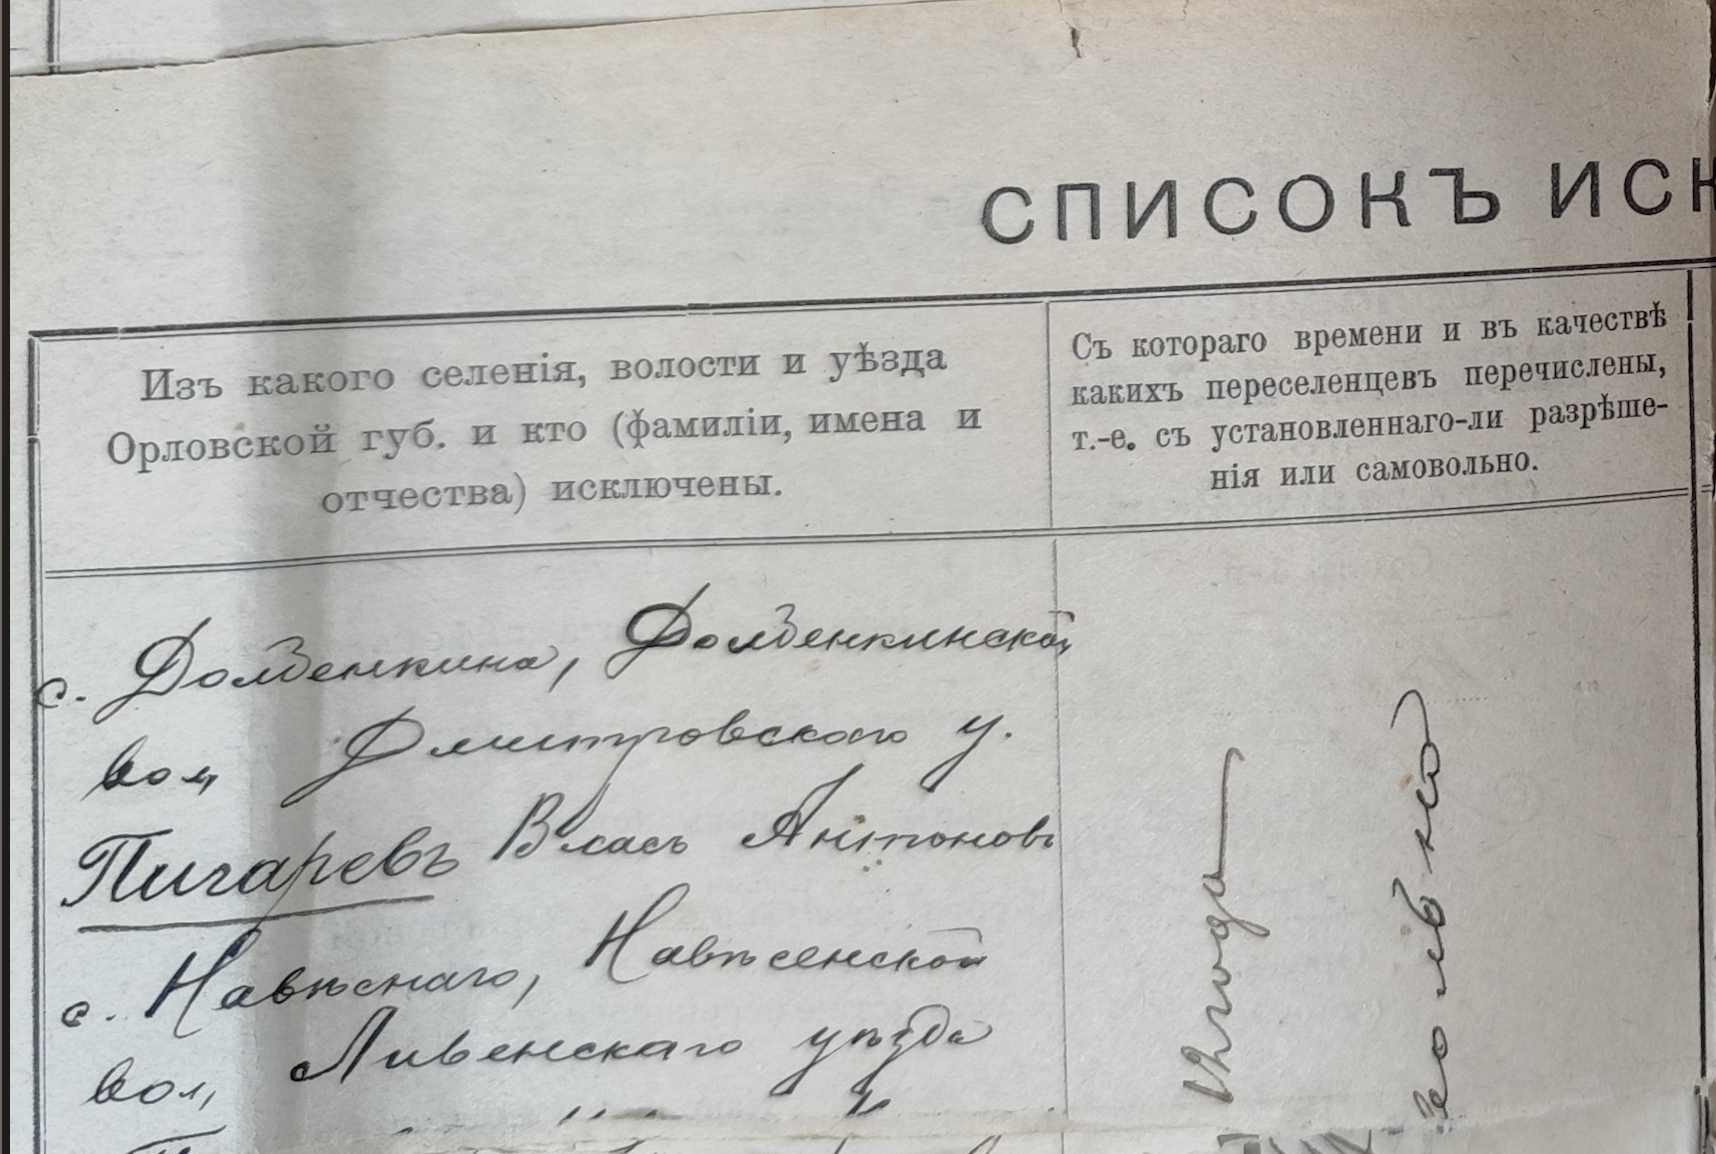 СПИСОКЪ ИСК
Изъ какого селенія, волости и уѣзда
Орловской губ. и кто (фамиліи, имена и
отчества) исключены.
Съ котораго времени и въ качествѣ
какихъ переселенцевъ перечислены,
т.-е. съ установленнаго-ли разрѣше-
нія или самовольно.
с. Долбенкина, Долбенкинской
вол. Дмитровского у.
Пигаревъ Власъ Антоновъ
с. Навѣснаго, Навѣсенской
вол. Ливенскаго уѣзда
года
вольно